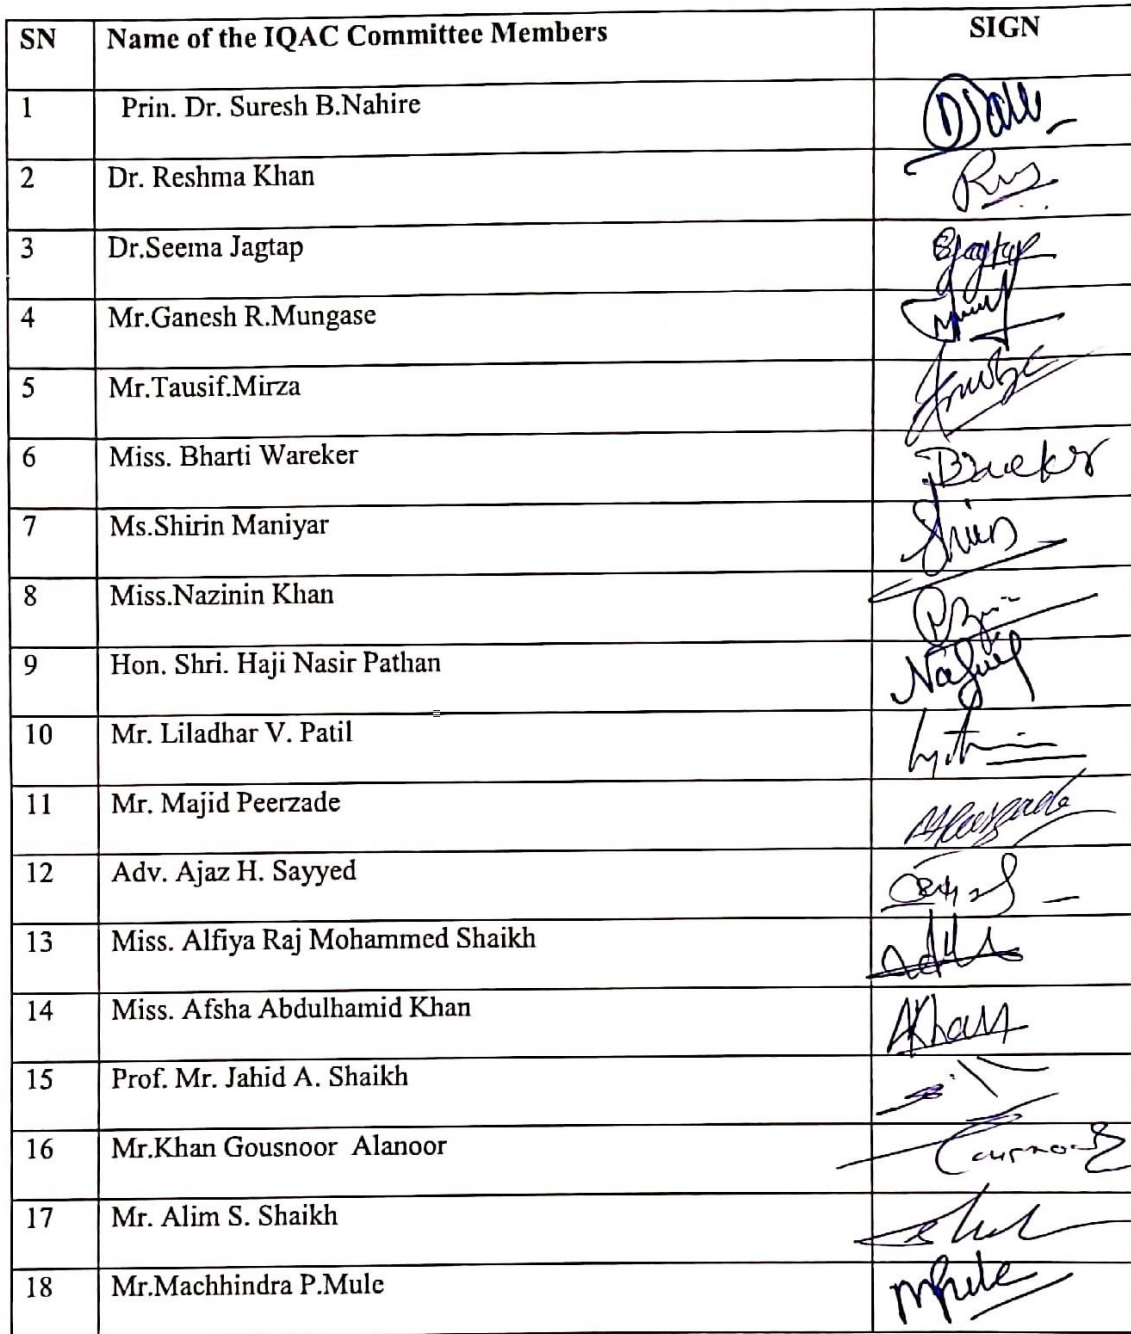 SN Name of the IQAC Committee Members SIGN
1 Prin. Dr. Suresh B.Nahire
2 Dr. Reshma Khan
3 Dr.Seema Jagtap Sjagtap
4 Mr.Ganesh R.Mungase
5 Mr.Tausif.Mirza
6 Miss. Bharti Wareker
7 Ms.Shirin Maniyar
8 Miss.Nazinin Khan
9 Hon. Shri. Haji Nasir Pathan
10 Mr. Liladhar V. Patil
11 Mr. Majid Peerzade
12 Adv. Ajaz H. Sayyed
13 Miss. Alfiya Raj Mohammed Shaikh
14 Miss. Afsha Abdulhamid Khan AKhan
15 Prof. Mr. Jahid A. Shaikh
16 Mr.Khan Gousnoor Alanoor
17 Mr. Alim S. Shaikh
18 Mr.Machhindra P.Mule